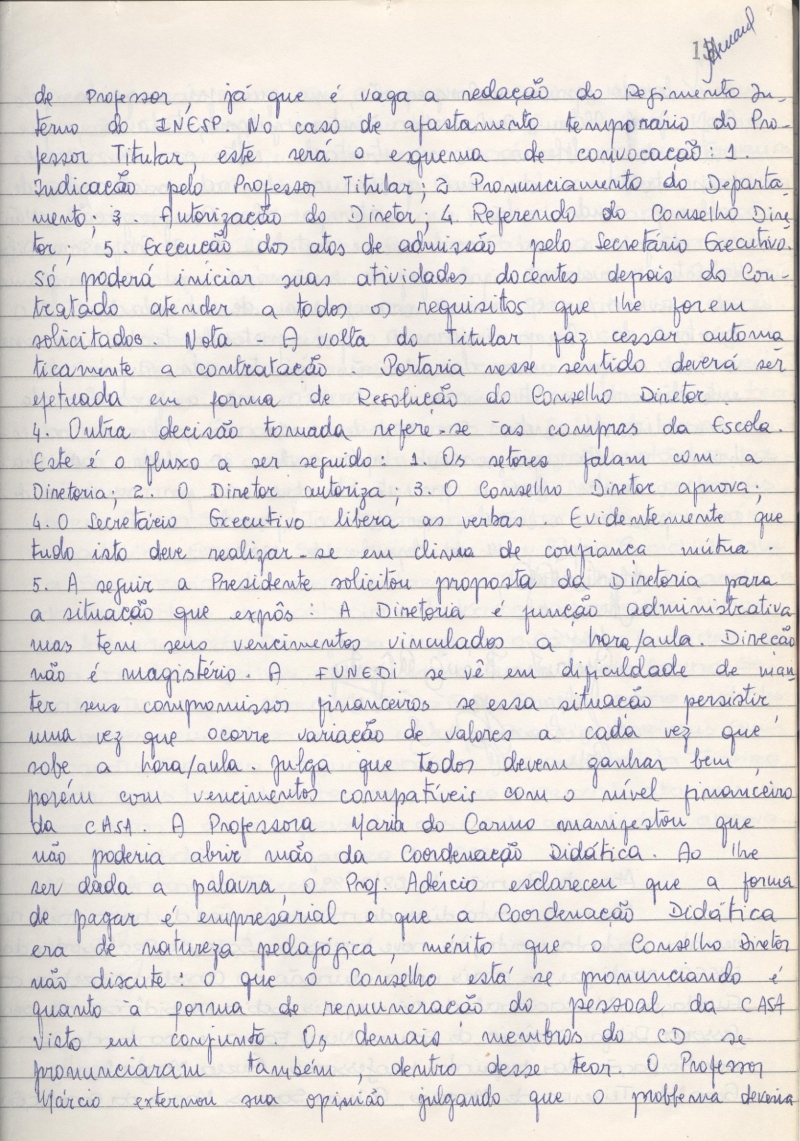 15
de Professor, já que é vaga a redação do Regimento In-
terno do INESP. No caso de afastamento temporário do Pro-
fessor Titular este será o esquema de convocação: 1.
Indicação pelo Professor Titular; 2 Pronunciamento do Departa-
mento; 3. Autorização do Diretor; 4. Referendo do Conselho Dire
tor; 5. Execução dos atos de admissão pelo Secretário Executivo.
Só poderá iniciar suas atividades docentes depois do Con-
tratado atender a todos os requisitos que lhe forem
solicitados. Nota - A volta do Titular faz cessar automa
ticamente a contratação. Portaria nesse sentido deverá ser
efetuada em forma de Resolução do Conselho Diretor
4. Outra decisão tomada refere-se as compras da Escola.
Este é o fluxo a ser seguido: 1. Os setores falam com a
Diretoria; 2. O Diretor autoriza; 3. O Conselho Diretor aprova;
4. O Secretário Executivo libera as verbas. Evidentemente que
tudo isto deve realizar-se em clima de confiança mútua.
5. A seguir a Presidente solicitou proposta da Diretoria para
a situação que expôs: A Diretoria é função administrativa
mas tem seus vencimentos vinculados a hora/aula. Direção
não é magistério. A FUNEDI se vê em dificuldade de man
ter seus compromissos financeiros se essa situação persistir
uma vez que ocorre variação de valores a cada vez que
sobe a hora/aula. Julga que todos devem ganhar bem,
porém com vencimentos compatíveis com o nível financeiro
da CASA. A Professora Maria do Carmo manifestou que
não poderia abrir mão da Coordenação Didática. Ao lhe
ser dada a palavra, o Prof. Adécio esclareceu que a forma
de pagar é empresarial e que a Coordenação Didática
era de natureza pedagógica, mérito que o Conselho Diretor
não discute: O que o Conselho está se pronunciando é
quanto à forma de remuneração do pessoal da CASA
visto em conjunto. Os demais membros do CD se
pronunciaram também, dentro desse teor. O Professor
Márcio externou sua opinião julgando que o problema deveria